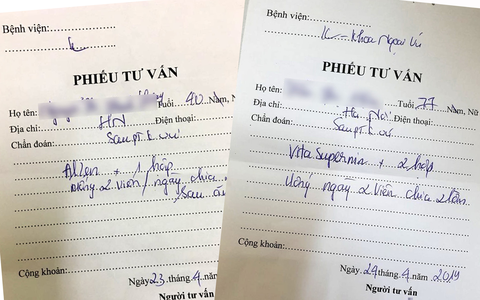 Bệnh viện:
K
PHIẾU TƯ VẤN
Họ tên: Tuổi 40 Năm, Nữ
Địa chỉ: HN Điện thoại:
Chẩn đoán: Sau pt K vú
1 hộp
uống 2 viên/ngày chia
sau ăn
Cộng khoản:
Ngày 23 tháng 4 năm
Người tư vấn
Bệnh viện:
K - Khoa Ngoại Vú
PHIẾU TƯ VẤN
Họ tên: Tuổi 77 Năm, Nữ
Địa chỉ: Hà Nội Điện thoại:
Chẩn đoán: Sau pt K vú
Vita Supermin + 2 hộp
Uống ngày 2 viên chia 2 lần
Cộng khoản:
Ngày 24 tháng 4 năm 2019
Người tư vấn